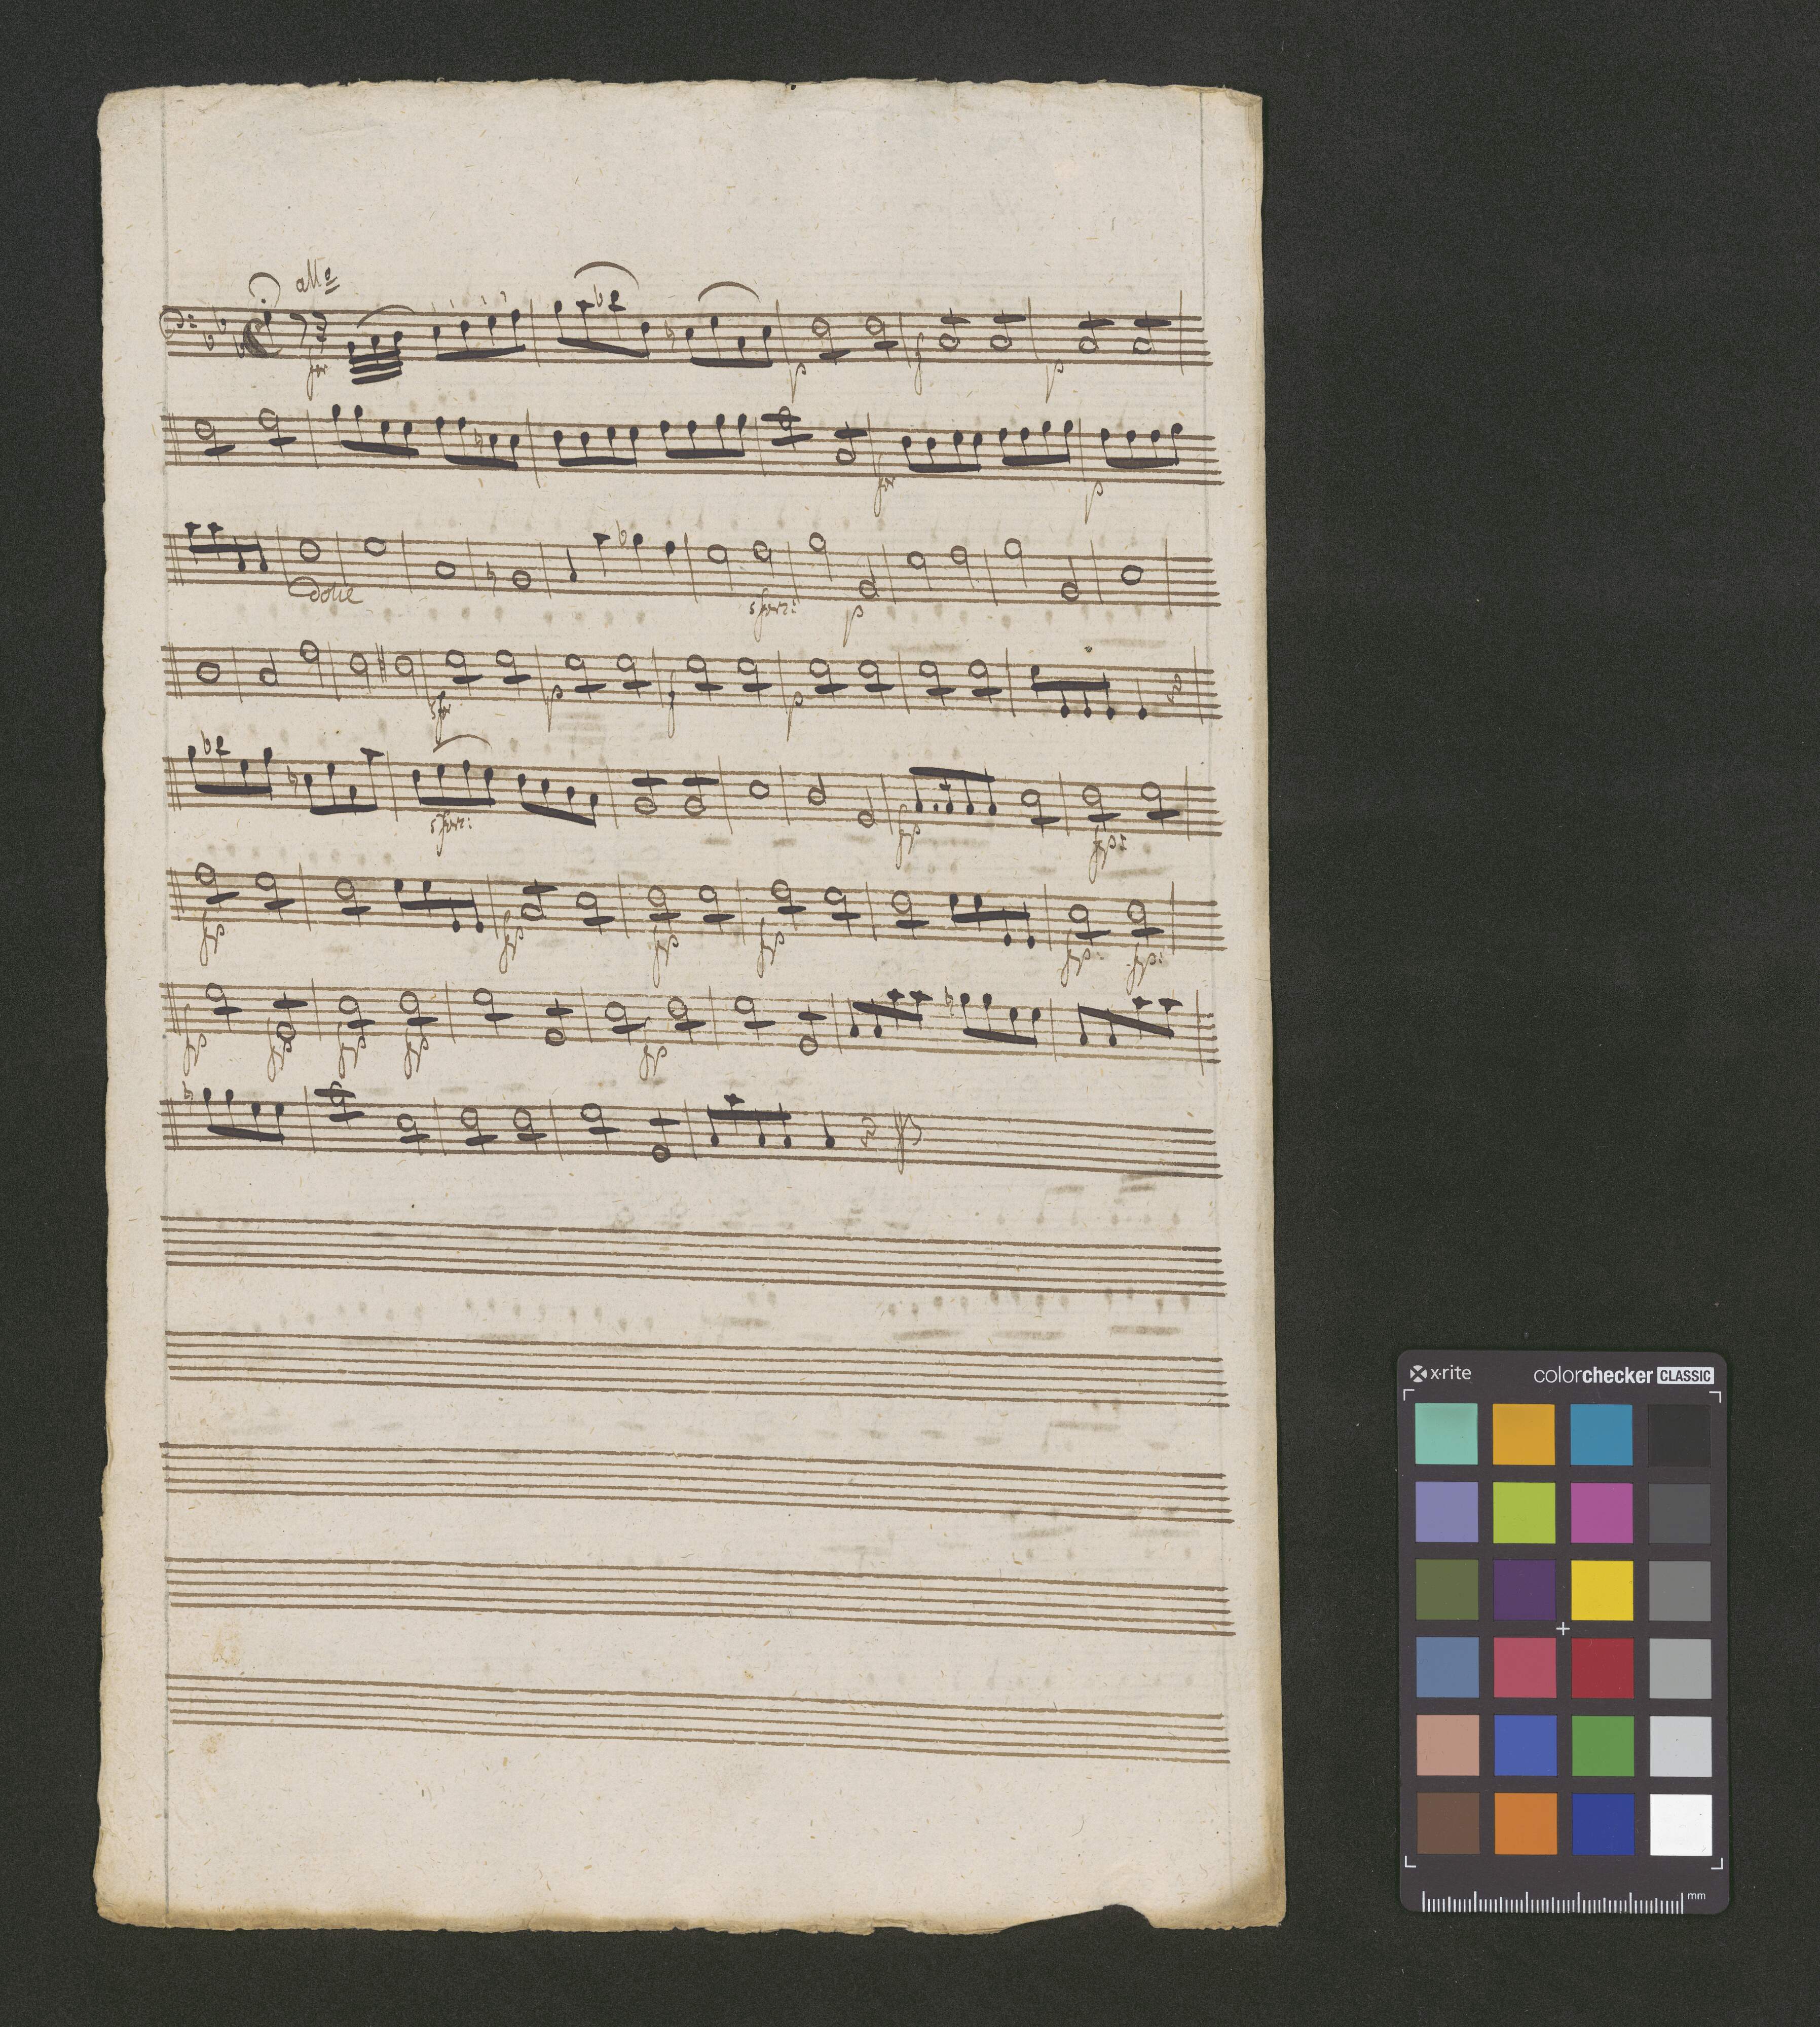 allo
for p f p
for p
dolce sforz: p
sfor p f p
sforz: fp fp:
fp fp fp fp fp: fp:
fp fp fp fp fp
x·rite colorchecker CLASSIC
mm